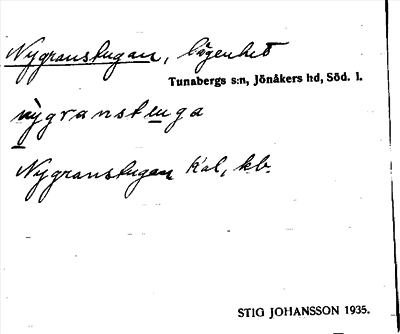 Nygranstugan, lägenhet
Tunabergs s:n, Jönåkers hd, Söd. l.
nỳgranstuga
Nygranstugan Kal, kb.
STIG JOHANSSON 1935.